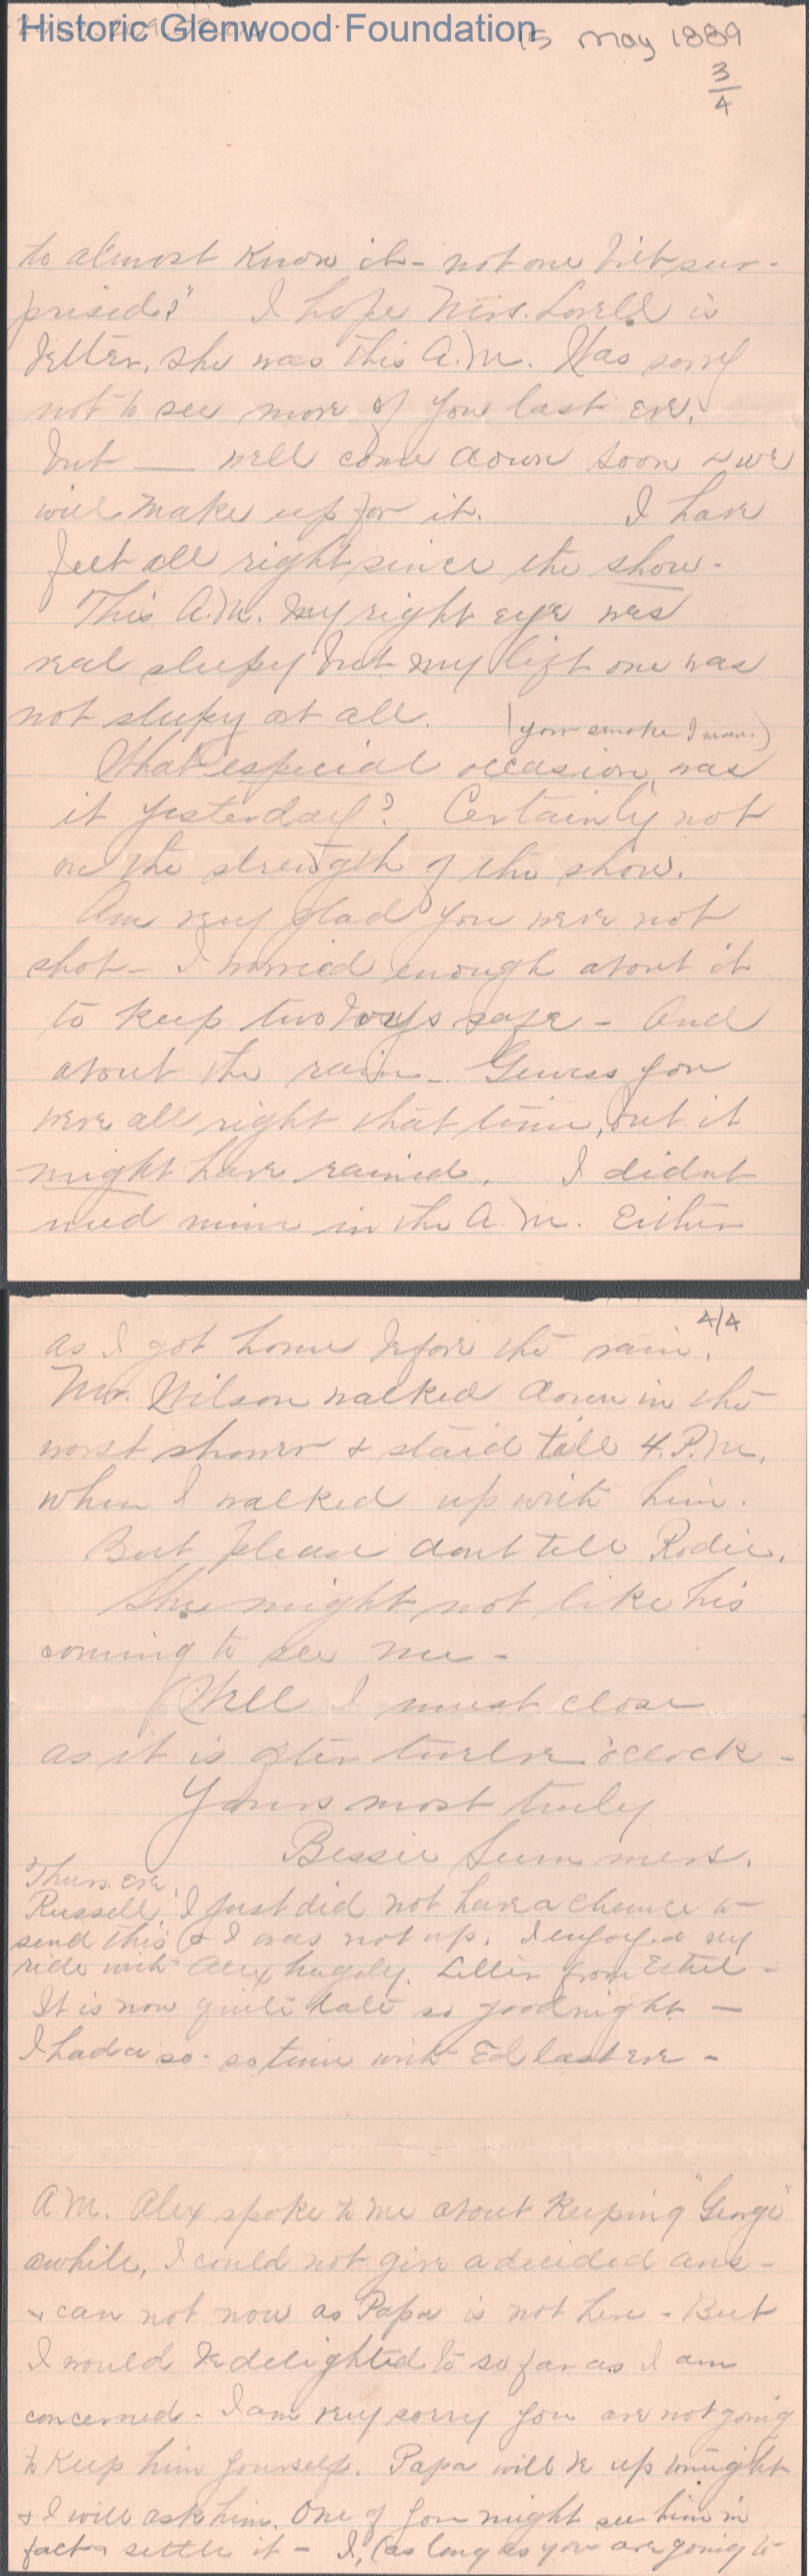 Historic Glenwood Foundation
15 May 1889
3/4
to almost know it - not one bit sur-
prised?" I hope Mrs. Lovell is
better, she was this A.M. Was sorry
not to see more of you last eve,
but — well come down soon & we
will make up for it. I have
felt all right since the show -
This A.M. my right eye was
real sleepy but my left one was
not sleepy at all.
(your smoke I mean)
What especial occasion was
it yesterday? Certainly not
on the strength of the show.
Am very glad you were not
shot - I worried enough about it
to keep two boys safe - And
about the rain - Guess you
were all right that time, but it
might have rained. I didnt
need mine in the A.M. Either
4/4
as I got home before the rain.
Mr. Wilson walked down in the
worst shower & staid till 4. P.M,
when I walked up with him.
But please dont tell Rodie.
She might not like his
coming to see me -
Well I must close
as it is after twelve o'clock -
Yours most truly
Bessie Summers.
Thurs. Eve,
Russell, I just did not have a chance to
send this & I was not up. I enjoyed my
ride with Alex hugely. Letter from Ethel -
It is now quite late so goodnight -
I had a so-so time with Ed last eve -
A.M. Alex spoke to me about keeping "George"
awhile, I could not give a decided ans -
& can not now as Papa is not here - But
I would be delighted to so far as I am
concerned - I am very sorry you are not going
to keep him yourself. Papa will be up tonight
& I will ask him. One of you might see him in
fact & settle it - I, (as long as you are going to